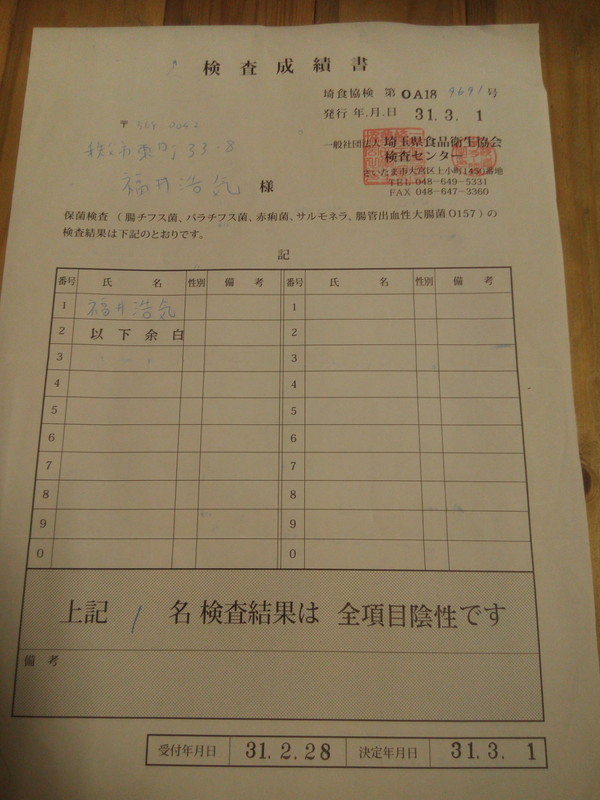 検査成績書
埼食協検 第 OA18 9691 号
発行 年.月.日 31.3.1
〒
一般社団法人 埼玉県食品衛生協会
検査センター
さいたま市大宮区上小町1450番地
TEL 048-649-5331
FAX 048-647-3360
33-8
福井浩気 様
保菌検査（腸チフス菌、パラチフス菌、赤痢菌、サルモネラ、腸管出血性大腸菌O157）の
検査結果は下記のとおりです。
記
番号 氏 名 性別 備 考 番号 氏 名 性別 備 考
1 福井浩気 1
2 以下余白 2
3 3
4 4
5 5
6 6
7 7
8 8
9 9
0 0
上記 1 名 検査結果は 全項目陰性です
備 考
受付年月日 31.2.28 決定年月日 31.3.1